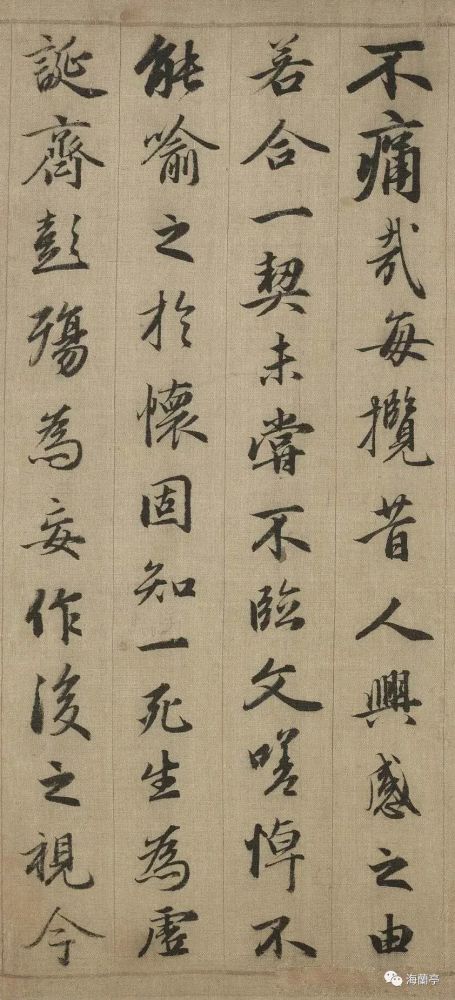 不痛哉每攬昔人興感之由
若合一契未嘗不臨文嗟悼不
能喻之於懷固知一死生為虛
誕齊彭殤為妄作後之視今
海蘭亭